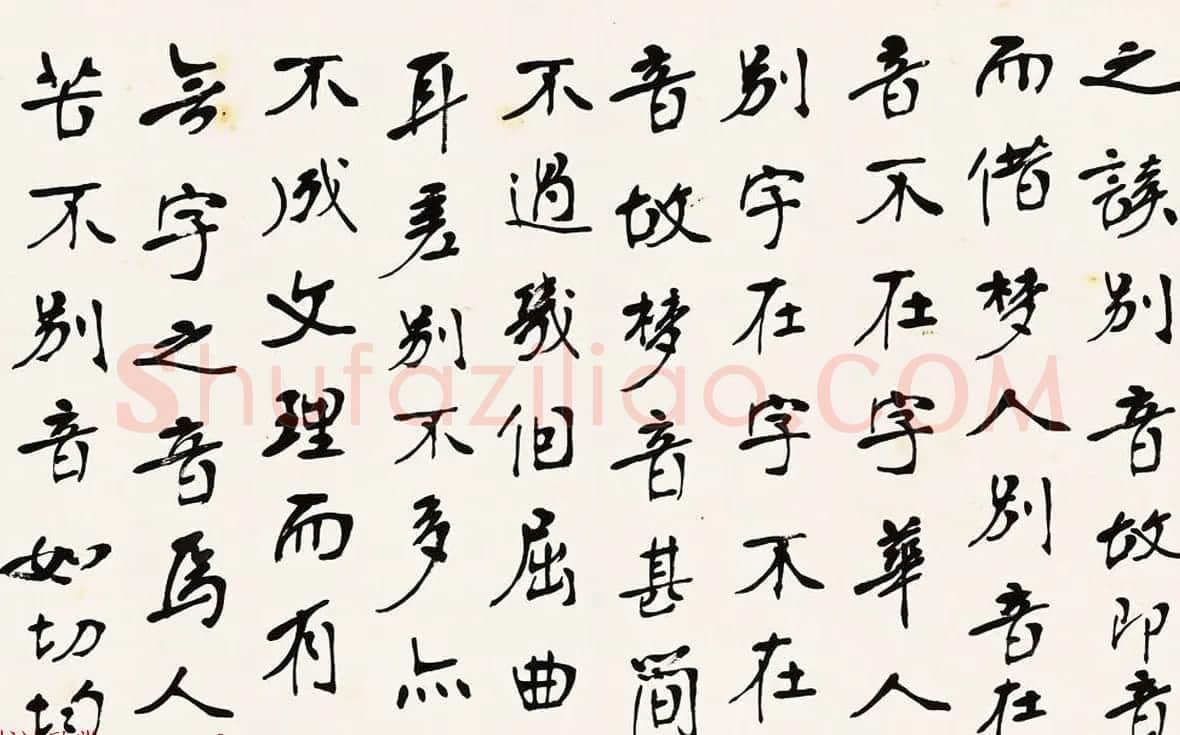 之别音故即音
而借梵人别音在
音不在字華人
别字在字不在
音故梵音甚簡
不過幾個屈曲
耳差别不多亦
不成文理而有
無字之音焉人
苦不别音如切均
Shufaziliao.COM